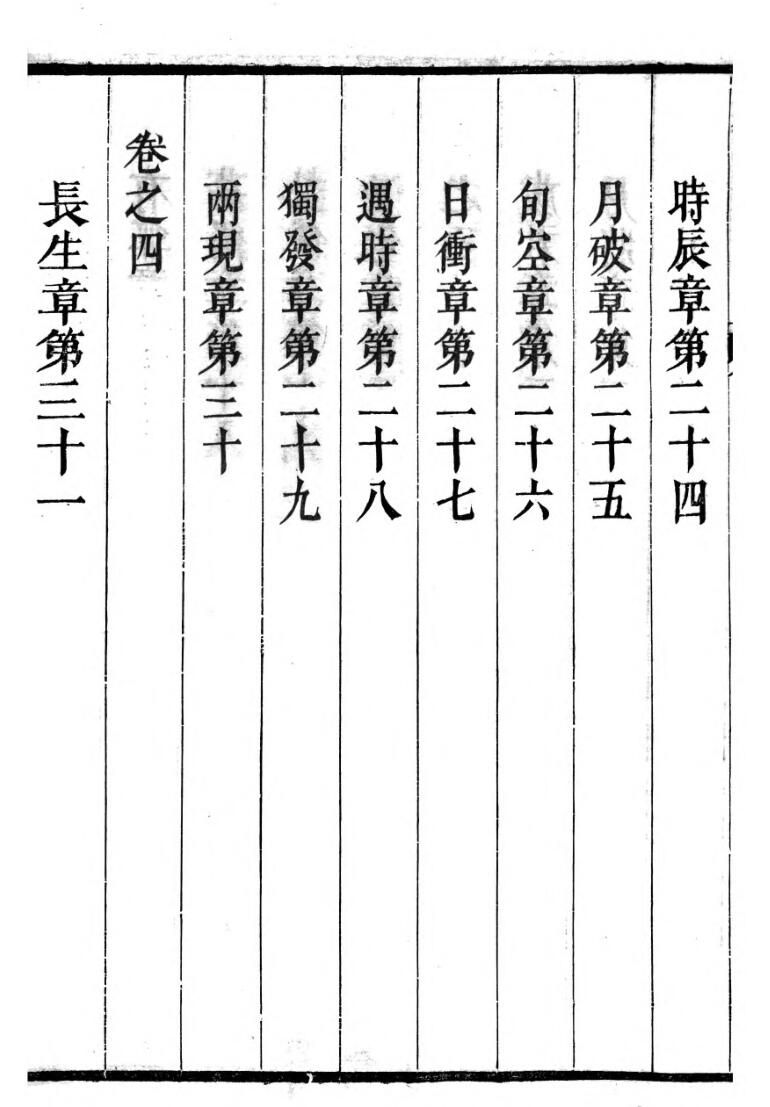 時辰章第二十四
月破章第二十五
旬空章第二十六
日衝章第二十七
遇時章第二十八
獨發章第二十九
兩現章第三十
卷之四
長生章第三十一